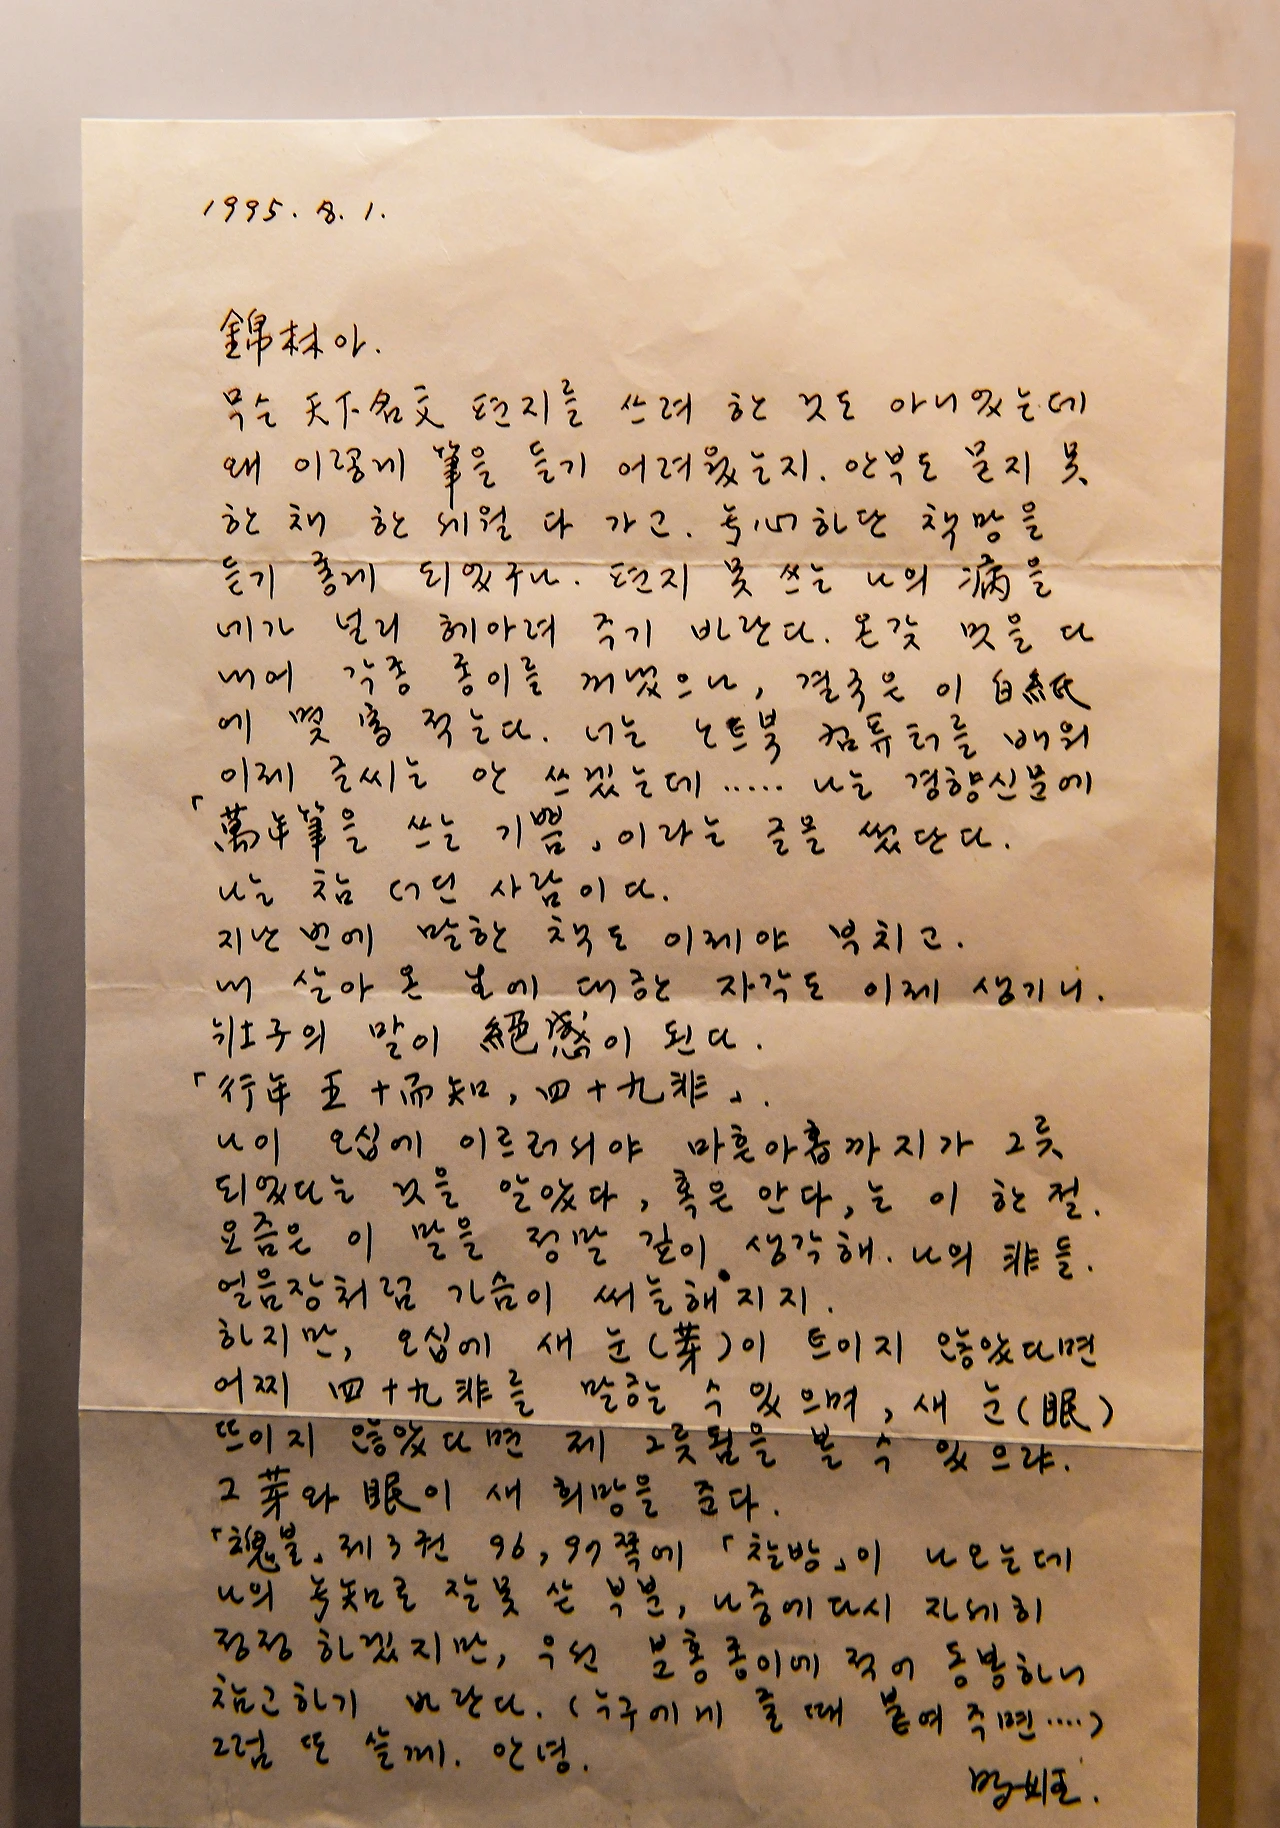 1995. 8. 1.
錦林아.
무슨 天下名文 편지를 쓰려 한 것도 아니었는데
왜 이렇게 筆을 들기 어려웠는지. 안부도 묻지 못
한 채 한 세월 다 가고. 무心하단 책망을
듣기 좋게 되었구나. 편지 못 쓰는 나의 病을
네가 널리 헤아려 주기 바란다. 온갖 멋을 다
내어 각종 종이를 꺼냈으나, 결국은 이 白紙
에 몇 字 적는다. 너는 노트북 컴퓨터를 배워
이제 글씨는 안 쓰겠는데..... 나는 경향신문에
「萬年筆을 쓰는 기쁨」이라는 글을 썼단다.
나는 참 더딘 사람이다.
지난번에 말한 책도 이제야 부치고.
내 살아온 날에 대한 자각도 이제 생기니.
의 말이 絕感이 된다.
「行年 五十而知, 四十九非」.
나이 오십에 이르러서야 마흔아홉까지가 그릇
되었다는 것을 알았다, 혹은 안다, 는 이 한 절.
요즘은 이 말을 정말 깊이 생각해. 나의 非들.
얼음장처럼 가슴이 써늘해지지.
하지만, 오십에 새 눈(芽)이 트이지 않았다면
어찌 四十九非를 말할 수 있으며, 새 눈(眼)
뜨이지 않았다면 제 그릇됨을 볼 수 있으랴.
그 芽와 眼이 새 희망을 준다.
「魂불」제3권 96, 97쪽에 「찰방」이 나오는데
나의 무知로 잘못 쓴 부분, 나중에 다시 자세히
정정하겠지만, 우선 분홍종이에 적어 동봉하니
참고하기 바란다. (누구에게 줄 때 붙여 주면....)
그럼 또 쓸께. 안녕.